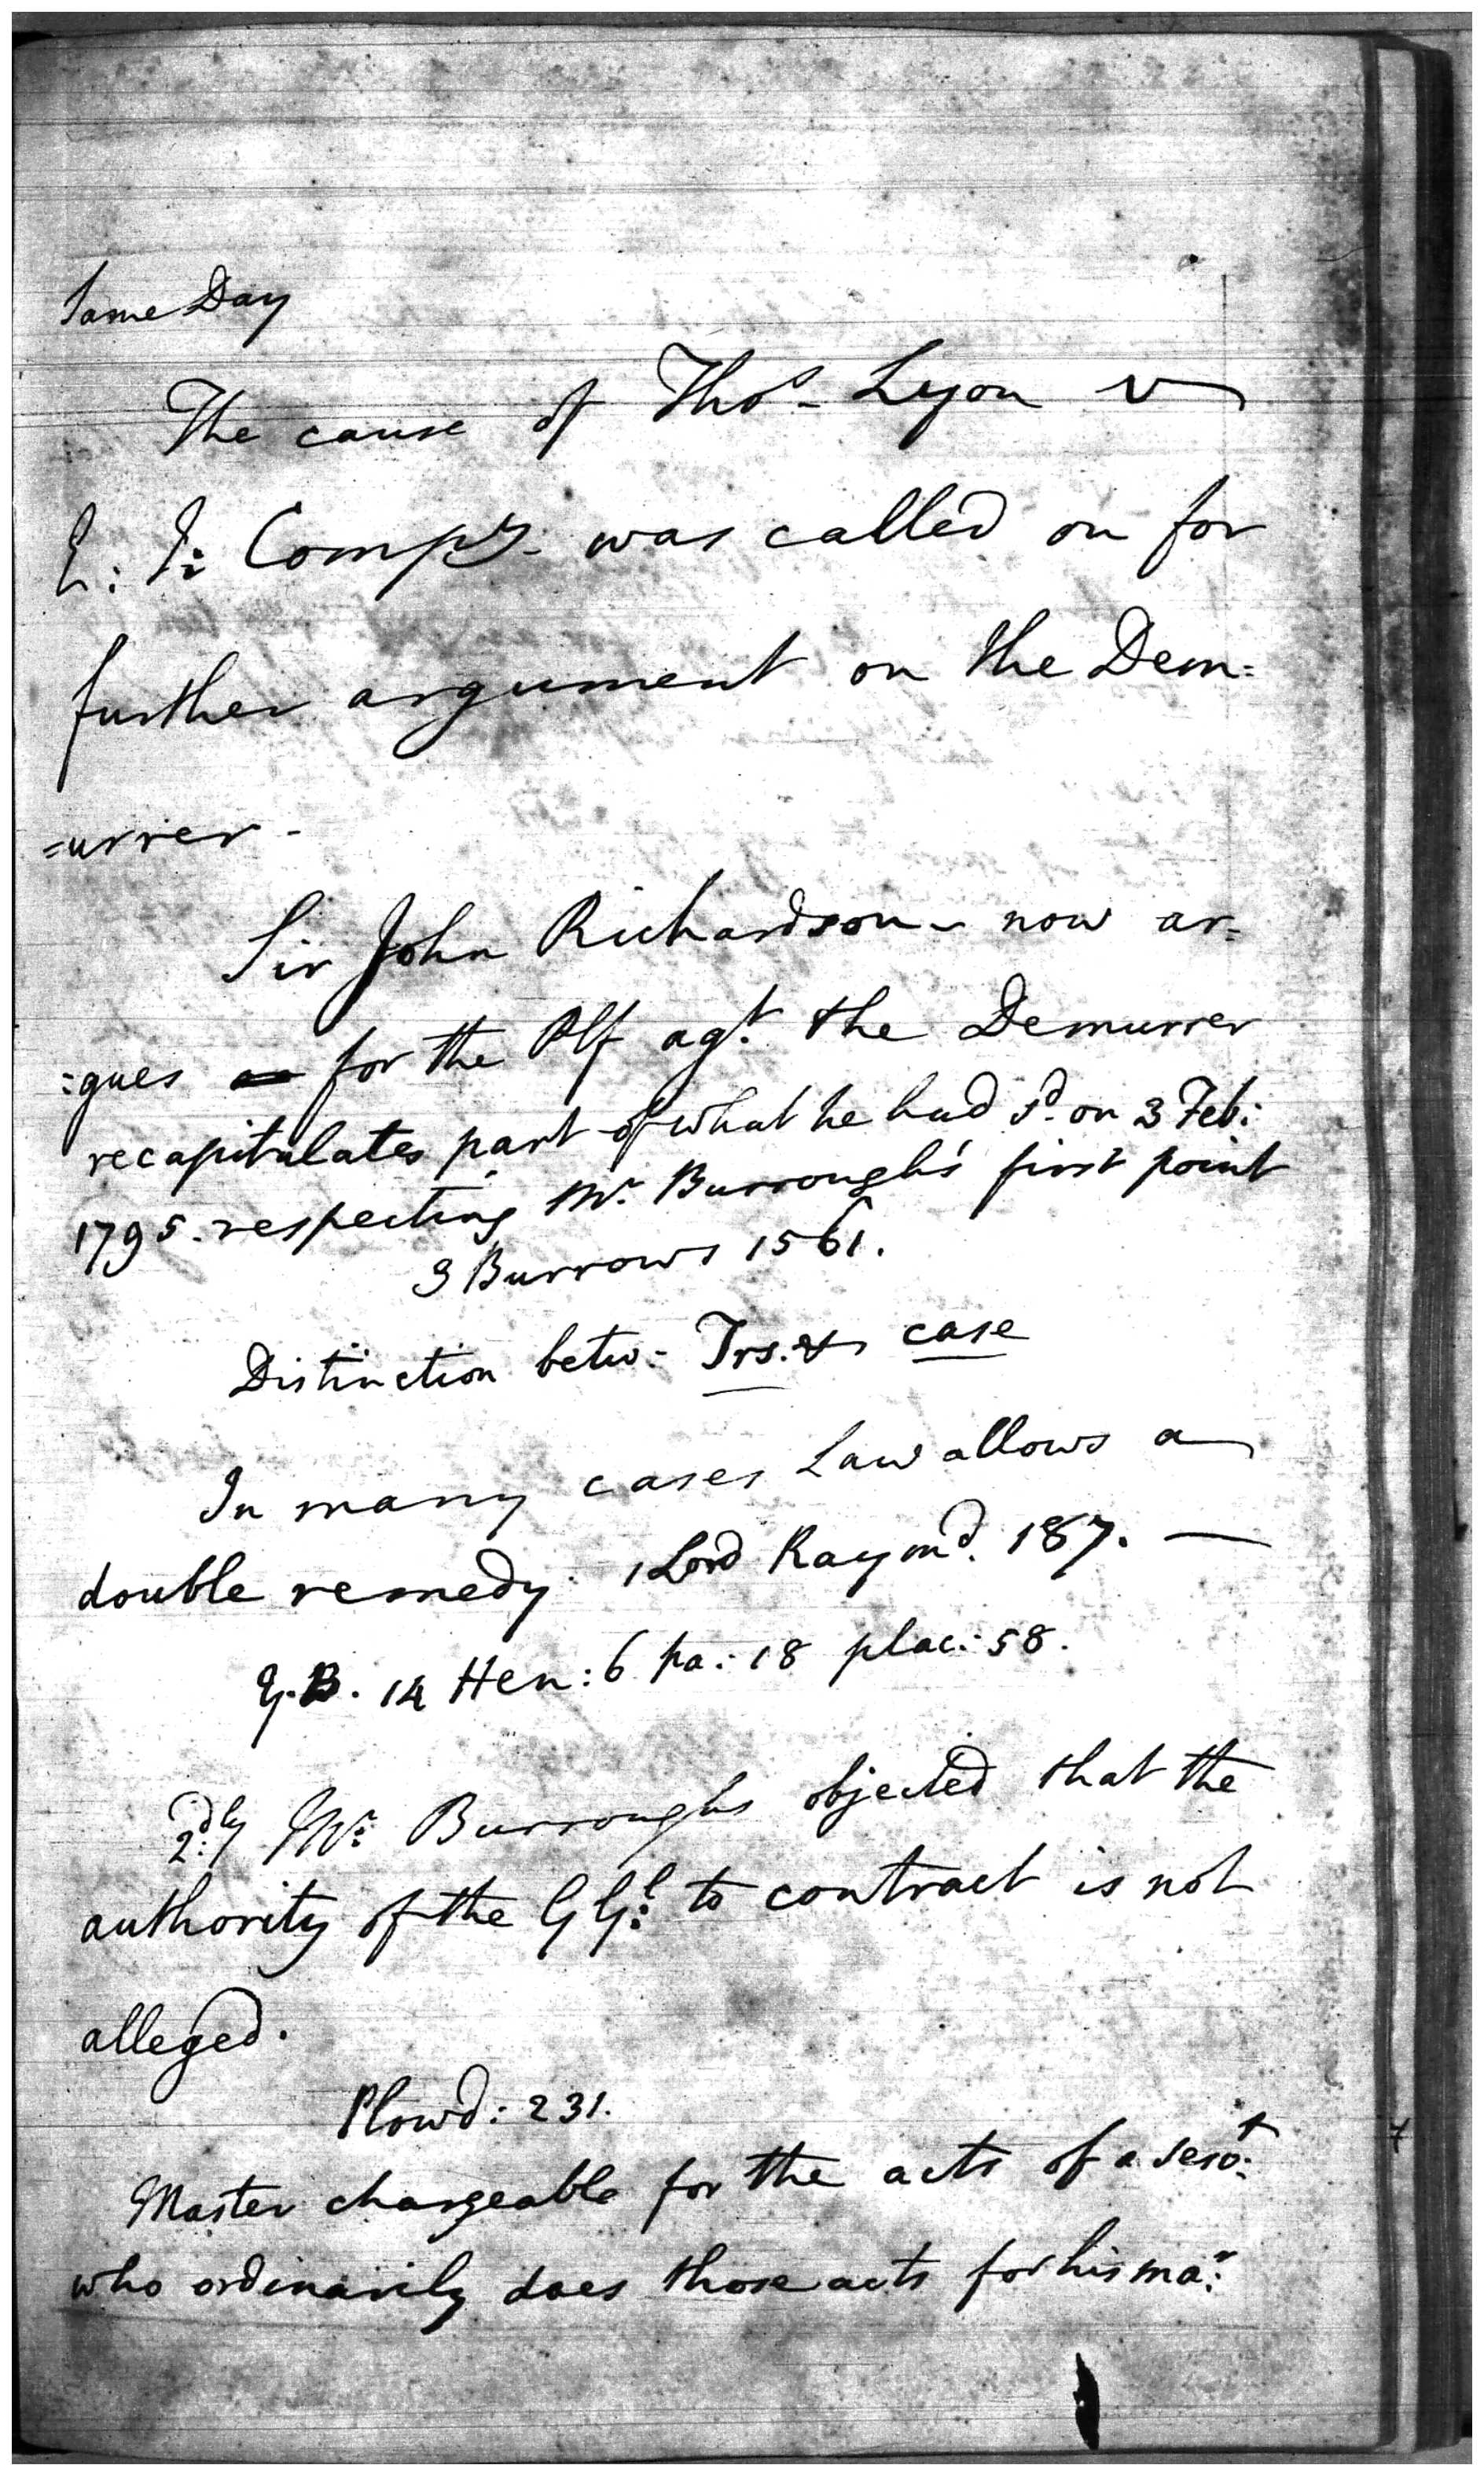 Same Day
The cause of Thos. Lyon v
E: I: Compy. was called on for
further argument on the Dem:
=urrer -
Sir John Richardson - now ar=
:gues for the Plf agt. the Demurrer
recapitulates part of what he had sd. on 3 Feb:
1795. respecting Mr. Burrough's first point
3 Burrows 1561.
Distinction betw: Trs. & case
In many cases Law allows a
double remedy. 1 Lord Raymd. 187. —
Y.B. 14 Hen: 6 pa: 18 plac: 58.
2dly Mr. Burroughs objected that the
authority of the G Gl: to contract is not
alleged.
Plowd: 231.
Master chargeable for the acts of a servt.
who ordinarily does those acts for his mar: